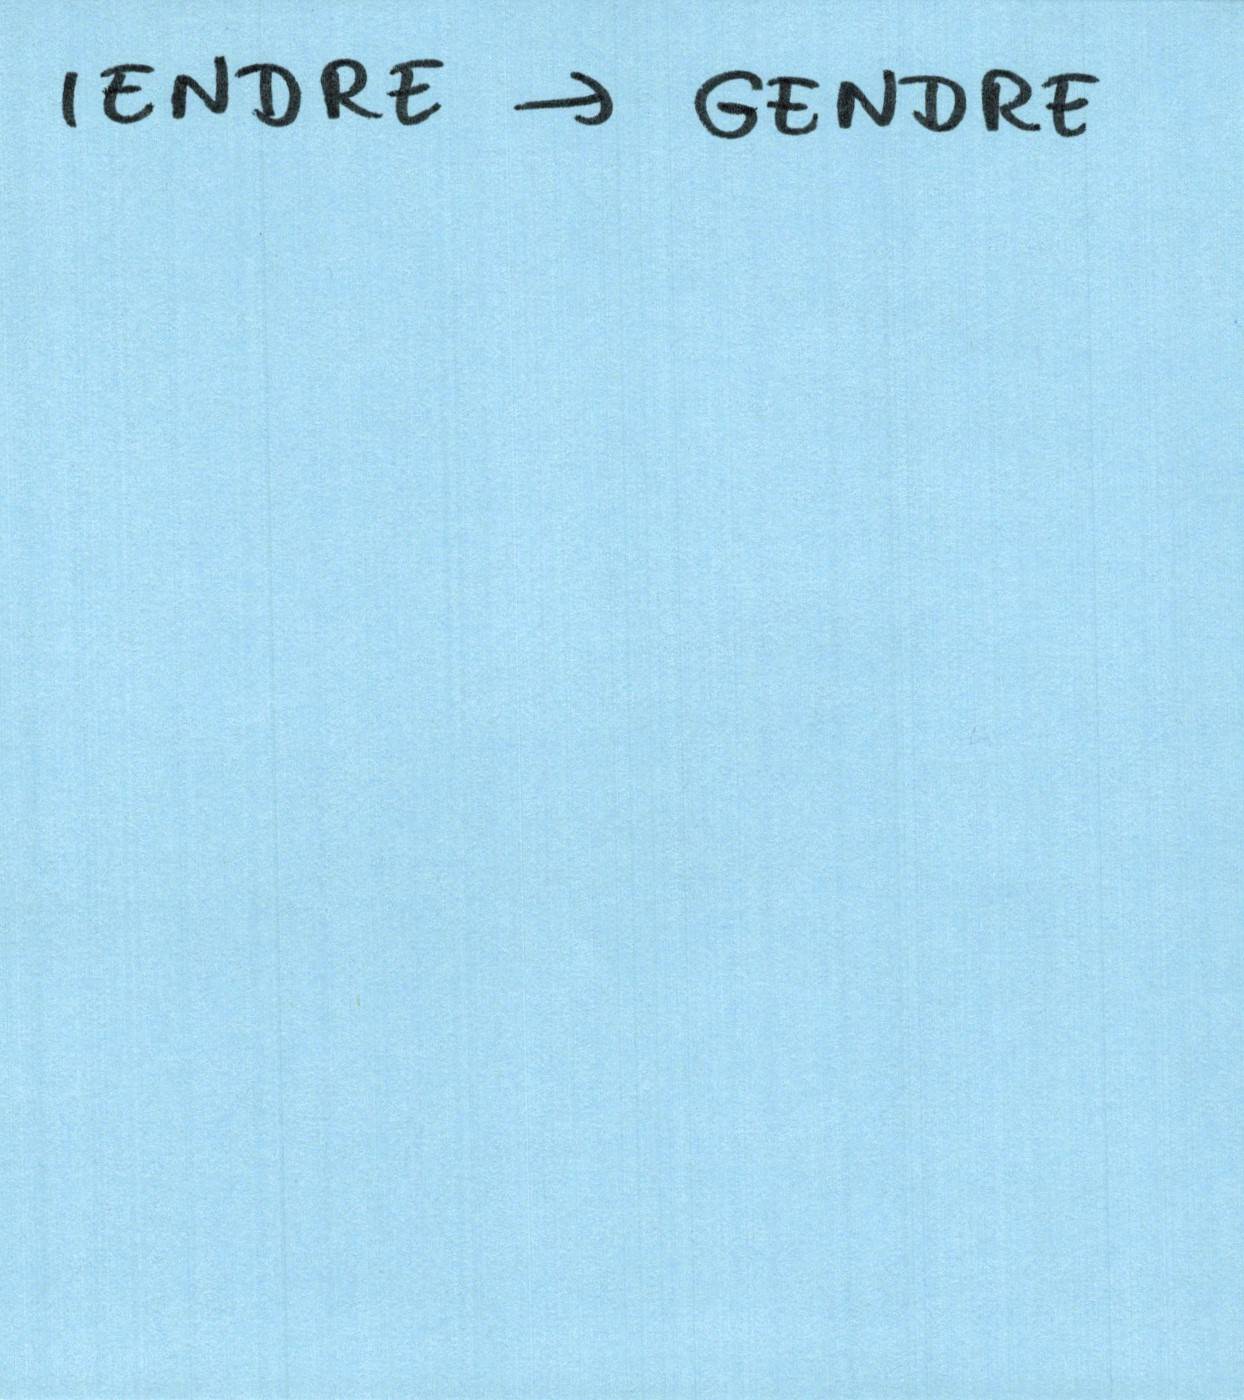 IENDRE → GENDRE